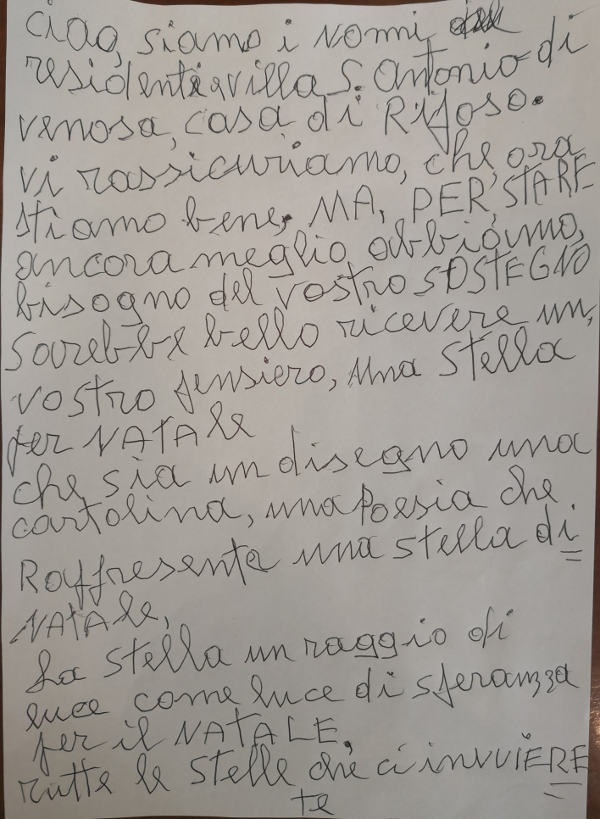 ciao, siamo i nonni
residenti a villa S. Antonio di
venosa, casa di Riposo.
vi rassicuriamo, che, ora
stiamo bene, MA, PER, STARE
ancora meglio abbiamo,
bisogno del vostro SOSTEGNO
Sarebbe bello ricevere un,
vostro pensiero, una stella
per NATAle
che, sia un disegno una
cartolina, una poesia che
Raffresenta una stella di
NATAle,
La stella un raggio di
luce come luce di speranza
per il NATALE,
tutte le stelle che ci invvieRE
te